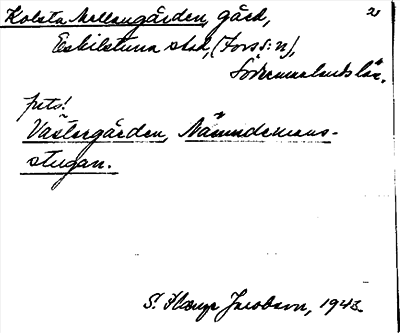 Kolsta Mellangården, gård, 2
Eskilstuna stad, (Fors s:n),
Södermanlands län.
frts!
Västergården, Nämndemans-
stugan.
S. Jacobson, 1943.